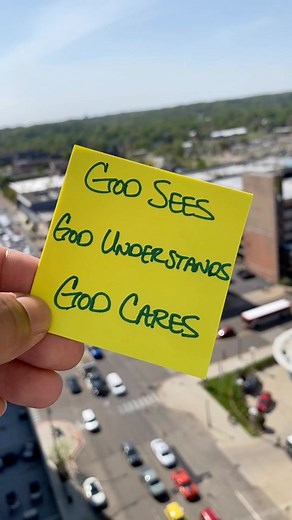 God Sees
God Understands
God Cares